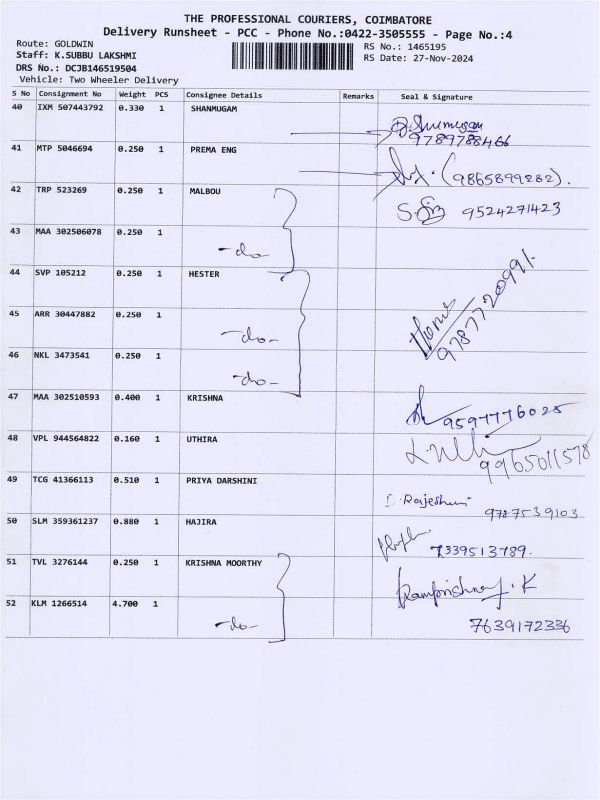 THE PROFESSIONAL COURIERS, COIMBATORE
Delivery Runsheet - PCC - Phone No.:0422-3505555 - Page No.:4
Route: GOLDWIN
Staff: K.SUBBU LAKSHMI
DRS No.: DCJB146519504
Vehicle: Two Wheeler Delivery
RS No.: 1465195
RS Date: 27-Nov-2024
S No Consignment No Weight PCS Consignee Details Remarks Seal & Signature
40 IXM 507443792 0.330 1 SHANMUGAM
9789788466
41 MTP 5046694 0.250 1 PREMA ENG
(9865899282).
42 TRP 523269 0.250 1 MALBOU
9524271423
43 MAA 302506078 0.250 1
-do-
44 SVP 105212 0.250 1 HESTER
9787720991
45 ARR 30447882 0.250 1
-do-
46 NKL 3473541 0.250 1
-do-
47 MAA 302510593 0.400 1 KRISHNA
9597776025
48 VPL 944564822 0.160 1 UTHIRA
9965011578
49 TCG 41366113 0.510 1 PRIYA DARSHINI
9787539103
50 SLM 359361237 0.880 1 HAJIRA
7339513789.
51 TVL 3276144 0.250 1 KRISHNA MOORTHY
52 KLM 1266514 4.700 1
-do- 7639172336